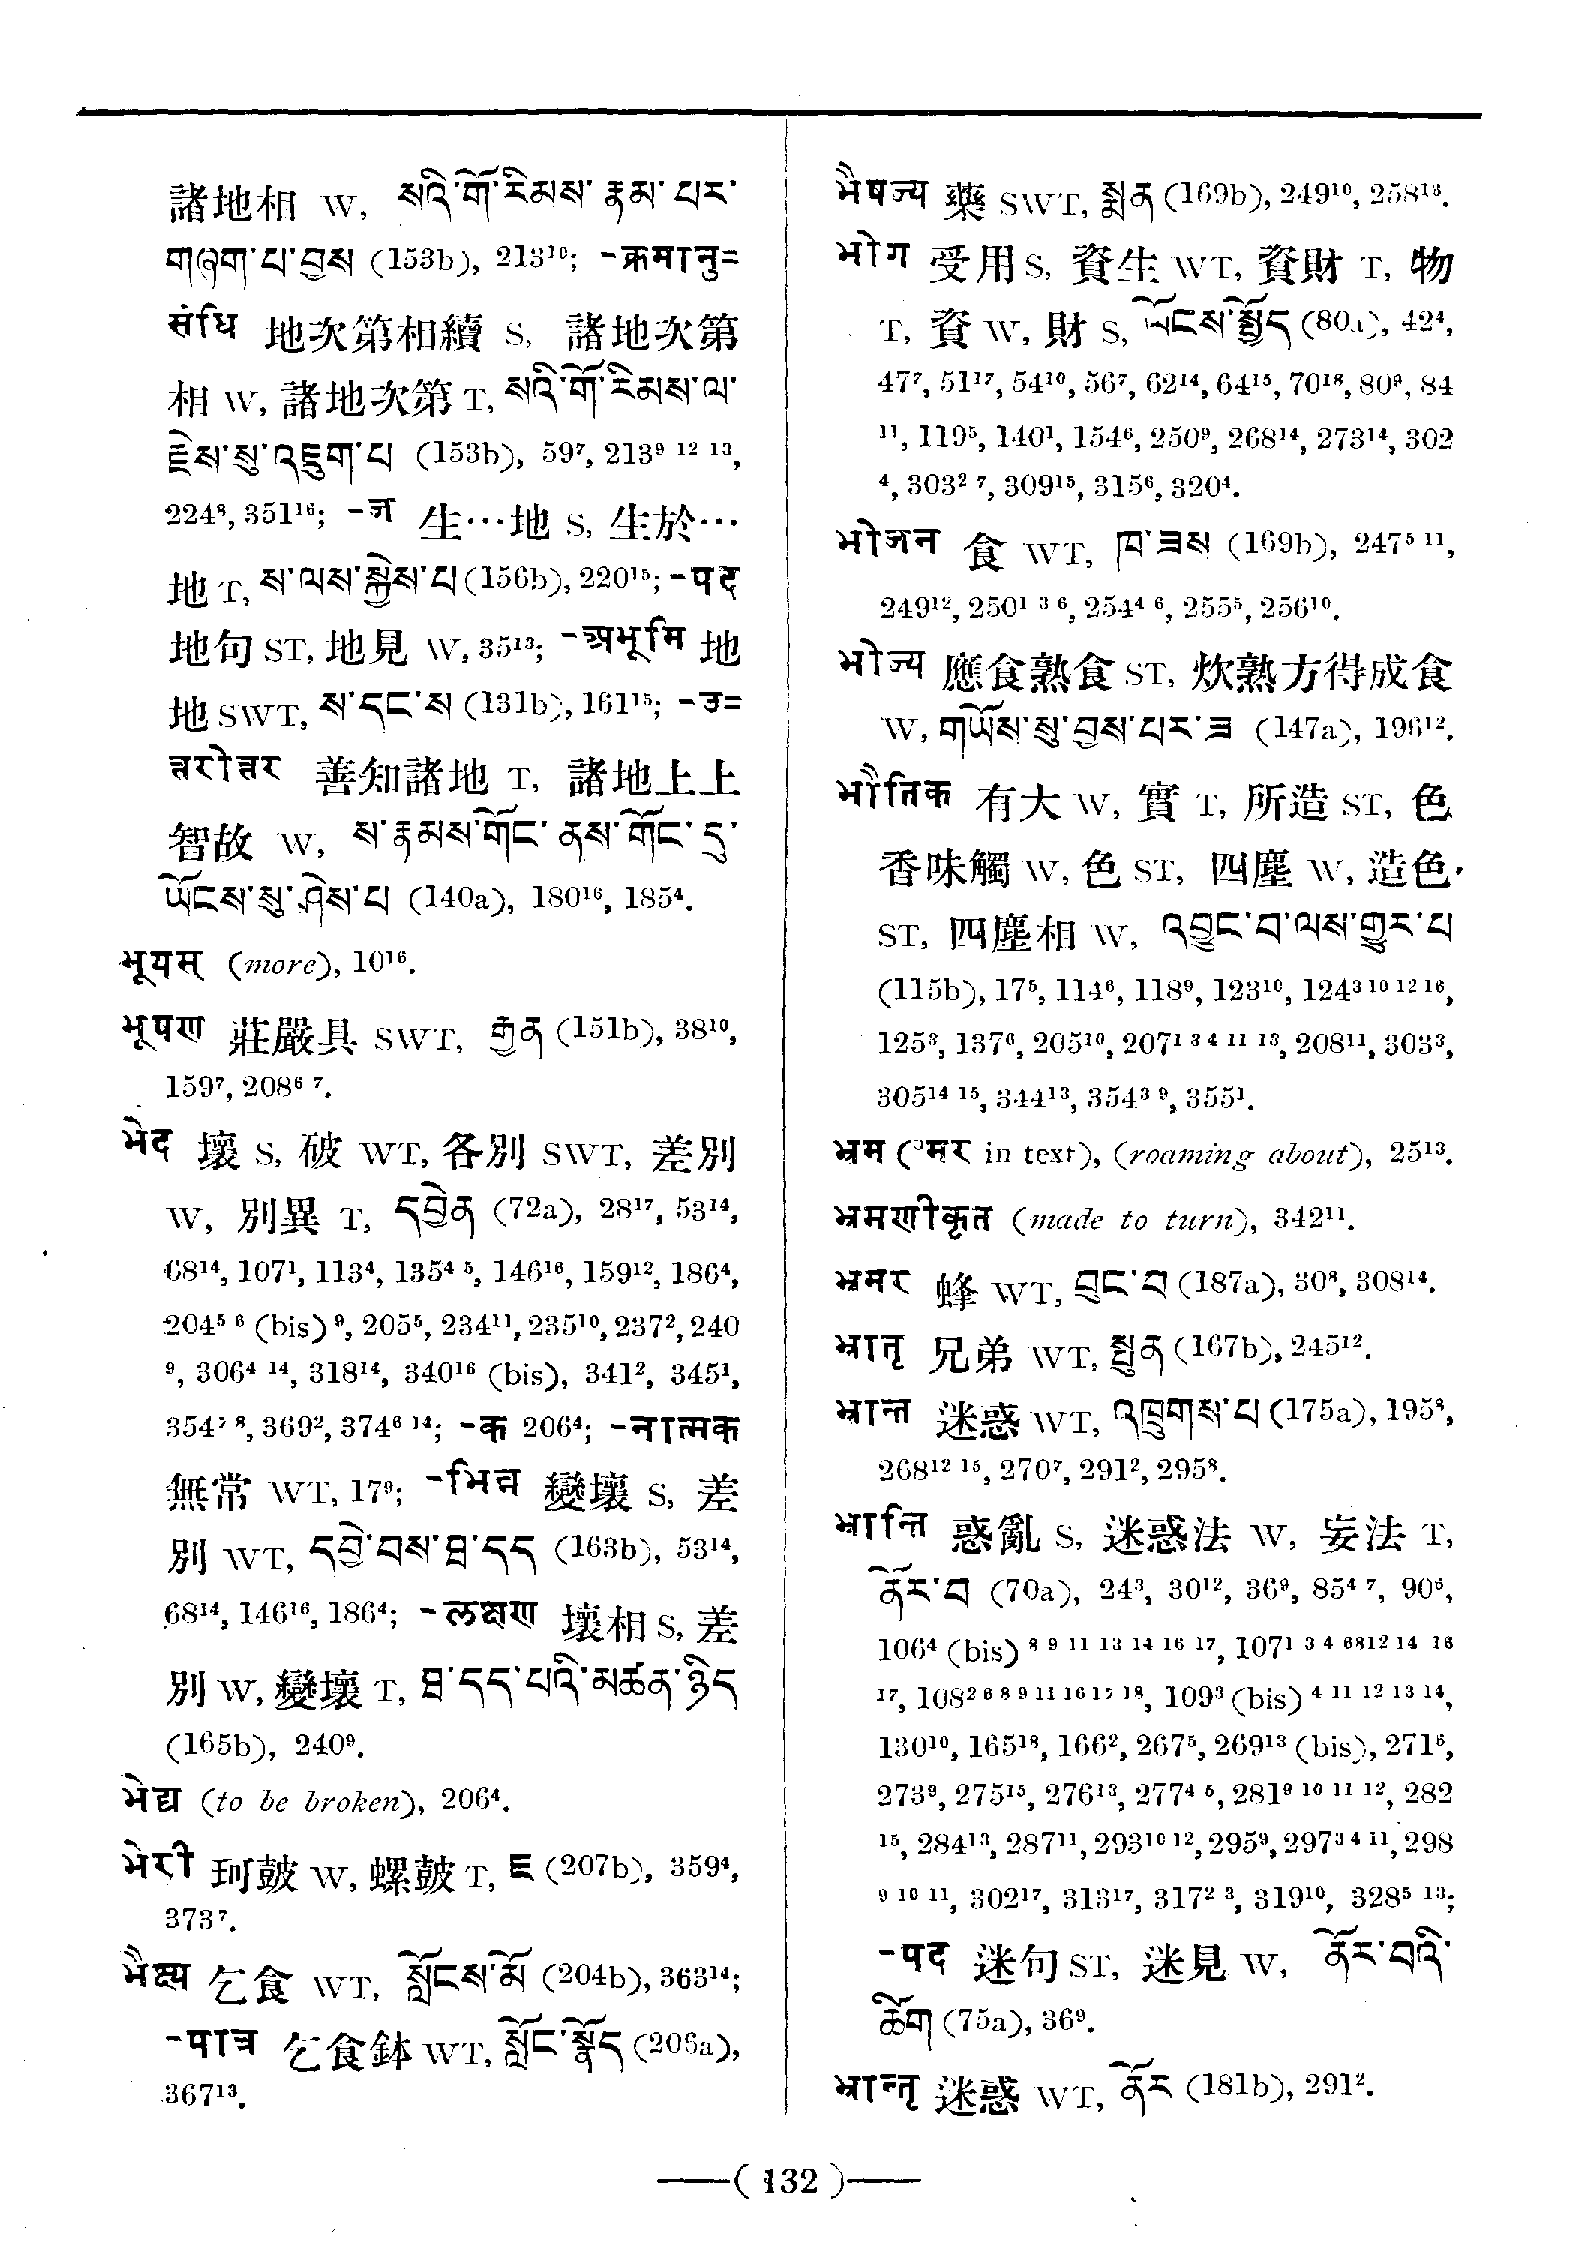 諸地相 W, སའི་གོ་རིམས་ རྣམ་ པར་
གཞག་པ་བྱས (153b), 213¹⁰; -क्रमानु=
संधि 地次第相續 S, 諸地次第
相 W, 諸地次第 T, སའི་གོ་རིམས་ལ་
རྗེས་སུ་འཇུག་པ (153b), 59⁷, 213⁹ ¹² ¹³,
224⁸, 351¹⁶; -ज 生⋯地 S, 生於⋯
地 T, ས་ལས་སྐྱེས་པ (156b), 220¹⁵; -पद
地句 ST, 地見 W, 35¹³; -अभूमि 地
地 SWT, ས་དང་ས (131b), 161¹⁵; -उ=
त्तरोत्तर 善知諸地 T, 諸地上上
智故 W, ས་རྣམས་གོང་ ནས་གོང་དུ་
ཡོངས་སུ་ཤེས་པ (140a), 180¹⁶, 185⁴.
भूयस् (more), 10¹⁶.
भूषण 莊嚴具 SWT, རྒྱན (151b), 38¹⁰,
159⁷, 208⁶ ⁷.
भेद 壞 S, 破 WT, 各別 SWT, 差別
W, 別異 T, དབྱེན (72a), 28¹⁷, 53¹⁴,
68¹⁴, 107¹, 113⁴, 135⁴ ⁵, 146¹⁶, 159¹², 186⁴,
204⁵ ⁶ (bis) ⁹, 205⁵, 234¹¹, 235¹⁰, 237², 240
⁹, 306⁴ ¹⁴, 318¹⁴, 340¹⁶ (bis), 341², 345¹,
354⁷ ⁸, 369², 374⁶ ¹⁴; -क 206⁴; -नात्मक
無常 WT, 17⁹; -भिन्न 變壞 S, 差
別 WT, དབྱེ་བས་ཐ་དད (163b), 53¹⁴,
68¹⁴, 146¹⁶, 186⁴; -लक्षण 壞相 S, 差
別 W, 變壞 T, ཐ་དད་པའི་མཚན་ཉིད
(165b), 240⁹.
भेद्य (to be broken), 206⁴.
भेरी 珂皷 W, 螺皷 T, རྔ (207b), 359⁴,
373⁷.
भैक्ष्य 乞食 WT, སློངས་མོ (204b), 363¹⁴;
-पात्र 乞食鉢 WT, སློང་སྣོད (206a),
367¹³.
भैषज्य 藥 SWT, སྨན (169b), 249¹⁰, 258¹⁶.
भोग 受用 S, 資生 WT, 資財 T, 物
T, 資 W, 財 S, ཡོངས་སྤྱོད (80a), 42⁴,
47⁷, 51¹⁷, 54¹⁰, 56⁷, 62¹⁴, 64¹⁵, 70¹⁸, 80⁹, 84
¹¹, 119⁵, 140¹, 154⁶, 250⁹, 268¹⁴, 273¹⁴, 302
⁴, 303² ⁷, 309¹⁵, 315⁶, 320⁴.
भोजन 食 WT, ཁ་ཟས (169b), 247⁵ ¹¹,
249¹², 250¹ ³ ⁶, 254⁴ ⁶, 255⁵, 256¹⁰.
भोज्य 應食熟食 ST, 炊熟方得成食
W, གཡོས་སུ་བྱས་པར་ཟ (147a), 196¹².
भौतिक 有大 W, 實 T, 所造 ST, 色
香味觸 W, 色 ST, 四塵 W, 造色
ST, 四塵相 W, འབྱུང་བ་ལས་གྱུར་པ
(115b), 17⁵, 114⁶, 118⁹, 123¹⁰, 124³ ¹⁰ ¹² ¹⁶,
125³, 137⁶, 205¹⁰, 207¹ ³ ⁴ ¹¹ ¹³, 208¹¹, 303³,
305¹⁴ ¹⁵, 344¹³, 354³ ⁹, 355¹.
भ्रम (°मर in text), (roaming about), 25¹³.
भ्रमणीकृत (made to turn), 342¹¹.
भ्रमर 蜂 WT, བུང་བ (187a), 30⁸, 308¹⁴.
भ्रातृ 兄弟 WT, སྤུན (167b), 245¹².
भ्रान्त 迷惑 WT, འཁྲུགས་པ (175a), 195⁸,
268¹² ¹⁵, 270⁷, 291², 295⁸.
भ्रान्ति 惑亂 S, 迷惑法 W, 妄法 T,
ནོར་བ (70a), 24³, 30¹², 36⁹, 85⁴ ⁷, 90⁶,
106⁴ (bis) ⁸ ⁹ ¹¹ ¹³ ¹⁴ ¹⁶ ¹⁷, 107¹ ³ ⁴ ⁶⁸¹² ¹⁴ ¹⁶
¹⁷, 108² ⁶ ⁸ ⁹ ¹¹ ¹⁶ ¹⁷ ¹⁸, 109³ (bis) ⁴ ¹¹ ¹² ¹³ ¹⁴,
130¹⁰, 165¹⁸, 166², 267⁵, 269¹³ (bis), 271⁶,
273⁹, 275¹⁵, 276¹³, 277⁴ ⁵, 281⁹ ¹⁰ ¹¹ ¹², 282
¹⁵, 284¹³, 287¹¹, 293¹⁰ ¹², 295⁹, 297³ ⁴ ¹¹, 298
⁹ ¹⁰ ¹¹, 302¹⁷, 313¹⁷, 317² ³, 319¹⁰, 328⁵ ¹³;
-पद 迷句 ST, 迷見 W, ནོར་བའི་
ཚིག (75a), 36⁹.
भ्रान्तृ 迷惑 WT, ནོར (181b), 291².
( 132 )